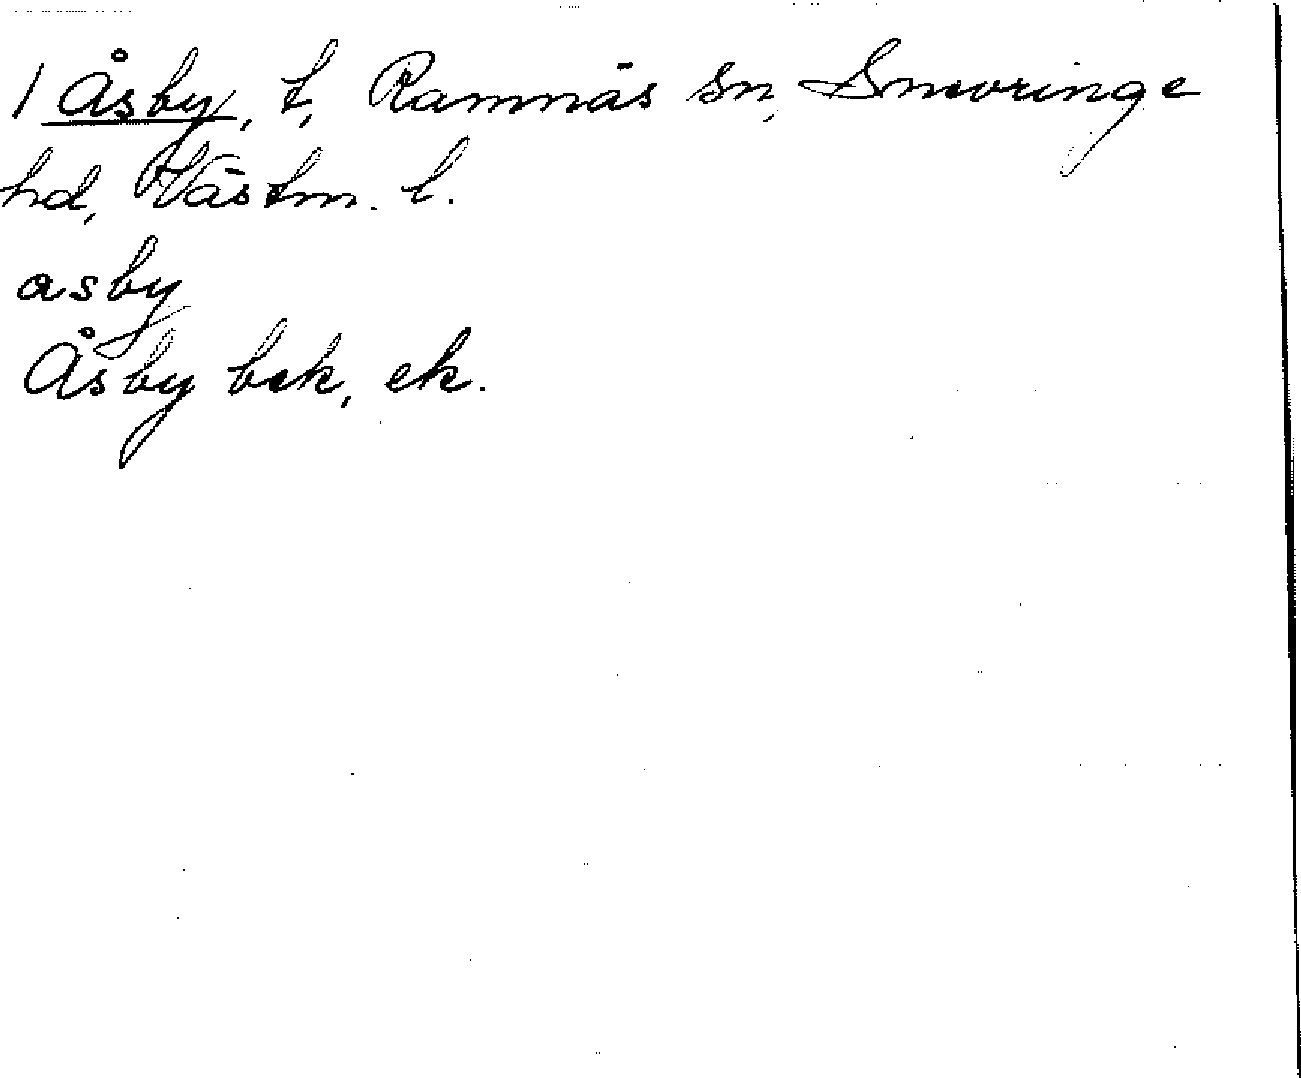 1 Åsby, t, Ramnäs sn, Snevringe
hd, Västm. l.
asby
Åsby bek, ek.